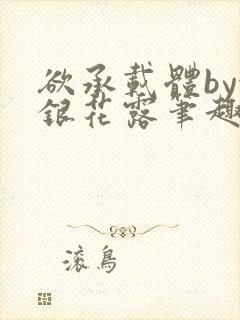 欲承載體by
銀花露筆趣
滾鳥